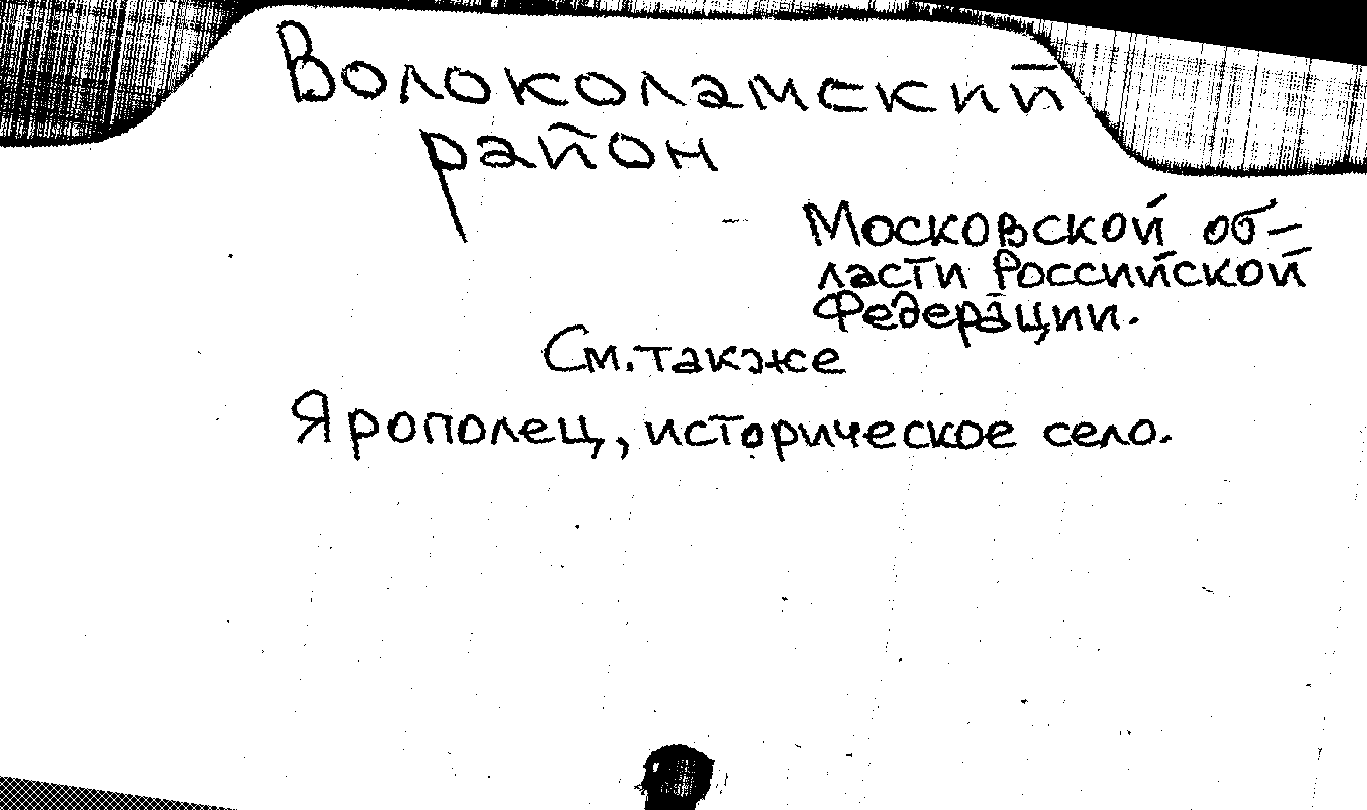 Волоколамский
район
Московской об-
ласти Российской
Федерации.
См. также
Ярополец, историческое село.